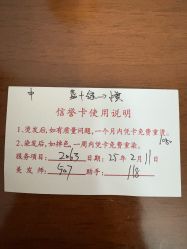 中
信誉卡使用说明
1、烫发后,如有质量问题,一个月内凭卡免费重烫。
2、染发后,如掉色,一周内凭卡免费重染。
服务项目: 2063 日期: 25 年 2 月 11 日
美发师: 507 助手: 118